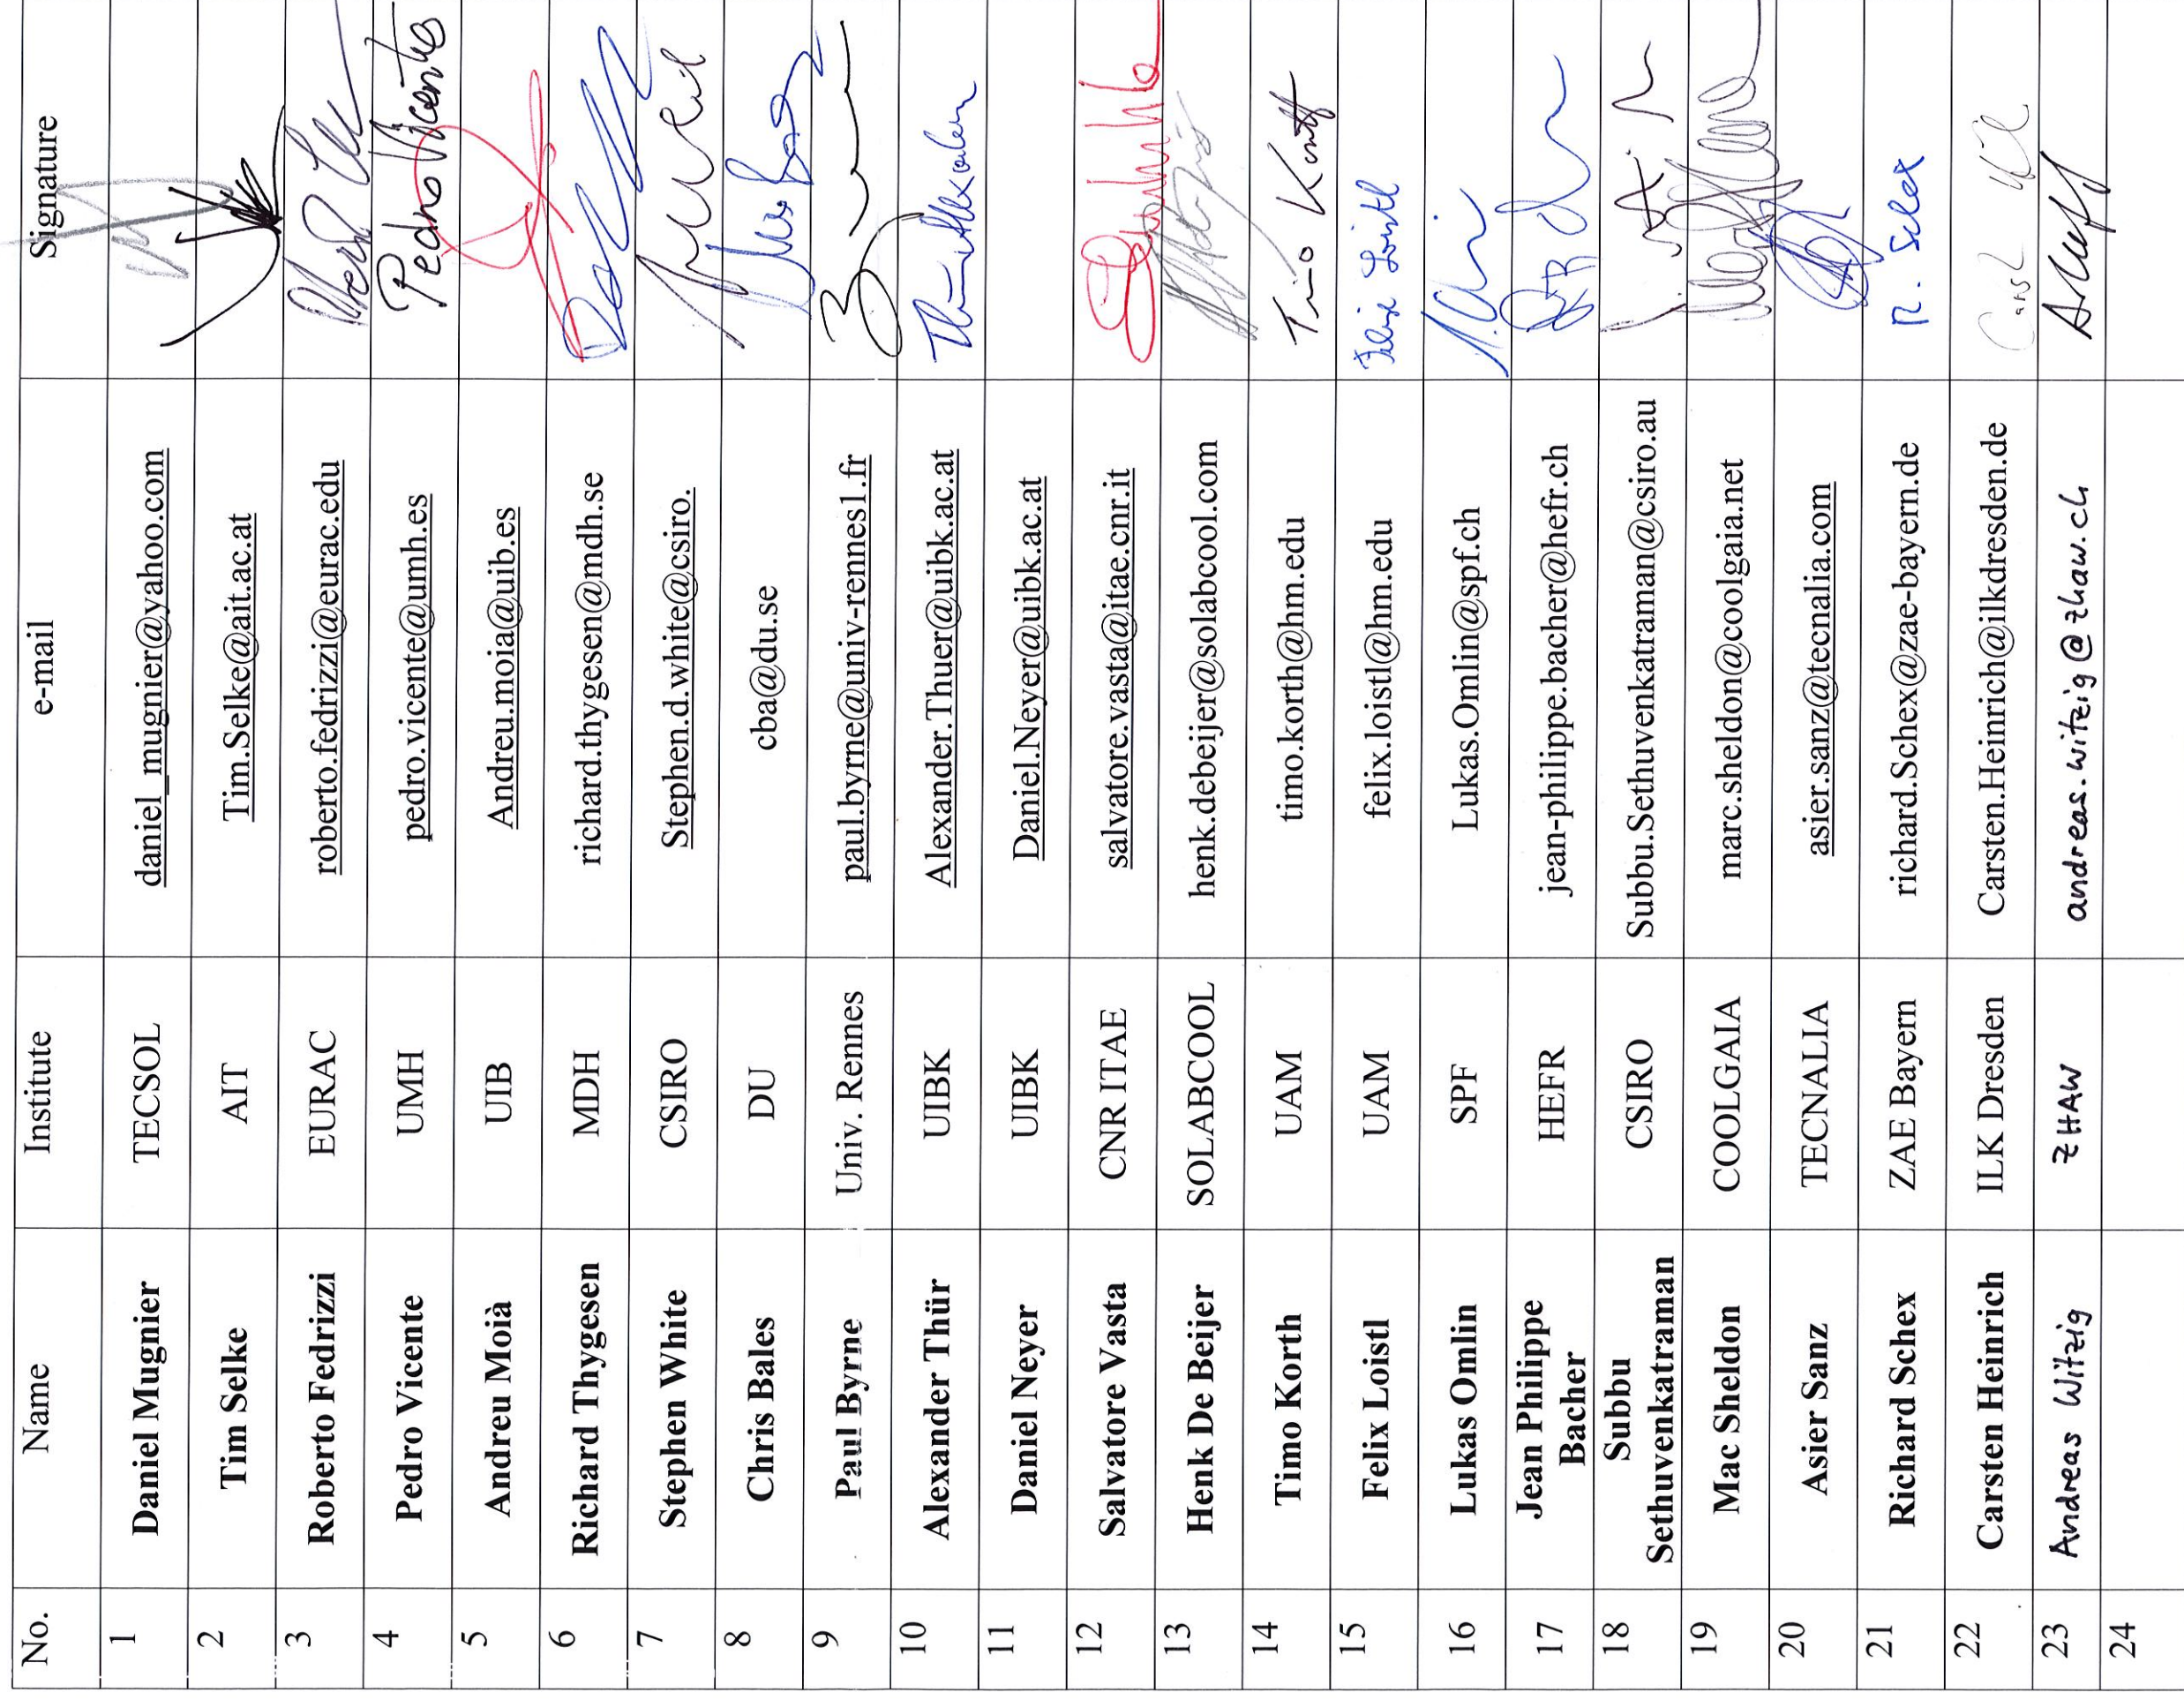 No. Name Institute e-mail Signature
1 Daniel Mugnier TECSOL daniel_mugnier@yahoo.com
2 Tim Selke AIT Tim.Selke@ait.ac.at
3 Roberto Fedrizzi EURAC roberto.fedrizzi@eurac.edu
4 Pedro Vicente UMH pedro.vicente@umh.es Pedro Vicente
5 Andreu Moià UIB Andreu.moia@uib.es
6 Richard Thygesen MDH richard.thygesen@mdh.se
7 Stephen White CSIRO Stephen.d.white@csiro.
8 Chris Bales DU cba@du.se
9 Paul Byrne Univ. Rennes paul.byrne@univ-rennes1.fr
10 Alexander Thür UIBK Alexander.Thuer@uibk.ac.at
11 Daniel Neyer UIBK Daniel.Neyer@uibk.ac.at
12 Salvatore Vasta CNR ITAE salvatore.vasta@itae.cnr.it
13 Henk De Beijer SOLABCOOL henk.debeijer@solabcool.com
14 Timo Korth UAM timo.korth@hm.edu Timo Korth
15 Felix Loistl UAM felix.loistl@hm.edu Felix Loistl
16 Lukas Omlin SPF Lukas.Omlin@spf.ch
17 Jean Philippe
Bacher HEFR jean-philippe.bacher@hefr.ch
18 Subbu
Sethuvenkatraman CSIRO Subbu.Sethuvenkatraman@csiro.au
19 Mac Sheldon COOLGAIA marc.sheldon@coolgaia.net
20 Asier Sanz TECNALIA asier.sanz@tecnalia.com
21 Richard Schex ZAE Bayern richard.Schex@zae-bayern.de R. Schex
22 Carsten Heinrich ILK Dresden Carsten.Heinrich@ilkdresden.de
23 Andreas Witzig ZHAW andreas.witzig@zhaw.ch
24